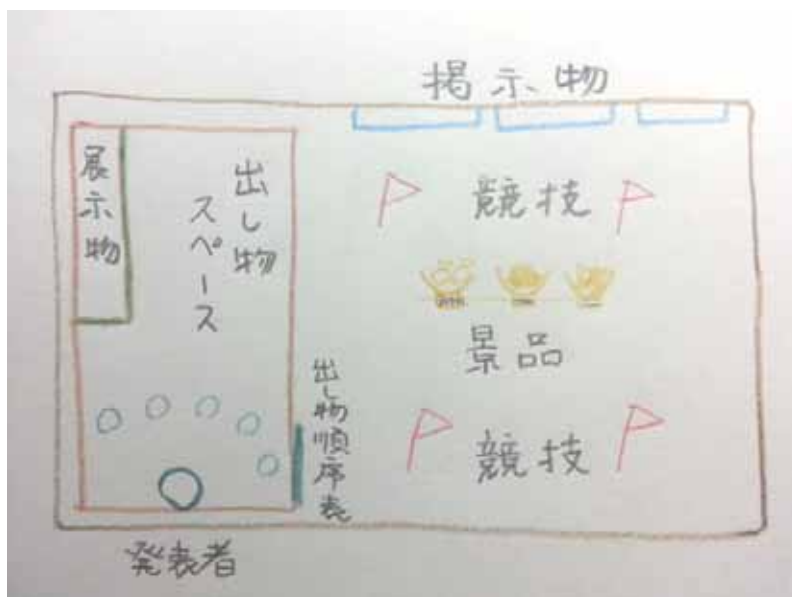 掲示物
展示物
出し物
スペース
競技
景品
出し物順序表
競技
発表者